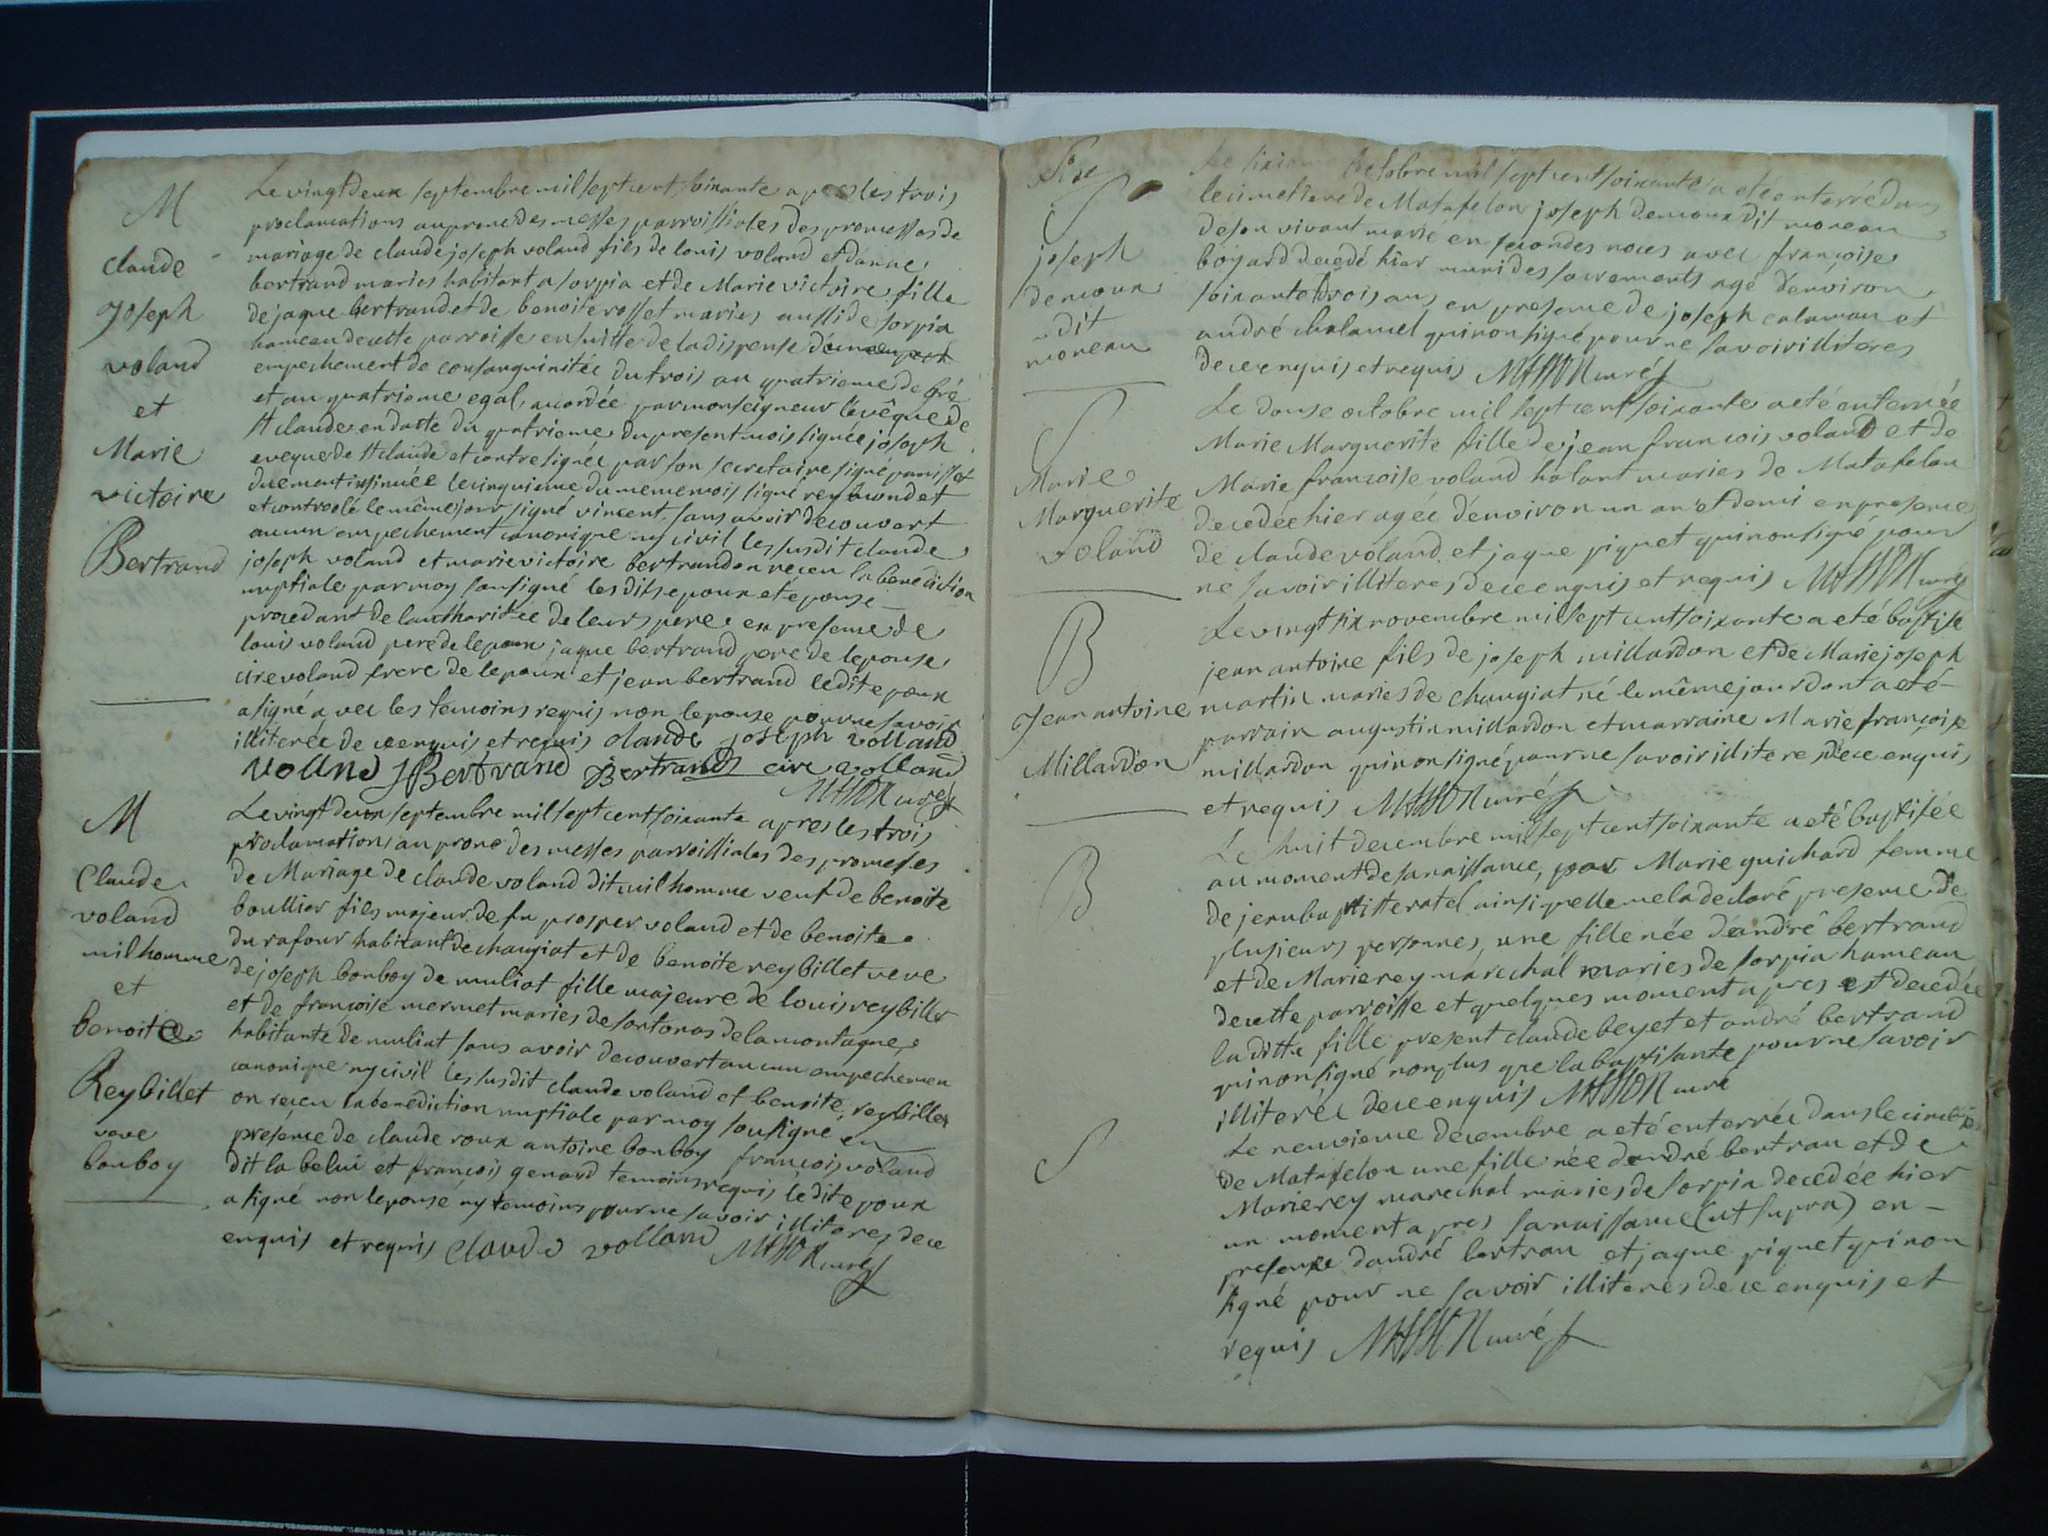 M
claude
Joseph
voland
et
Marie
victoire
Bertrand
Le vingt deux septembre mil sept cent soixante apres les trois
proclamations au prone des messes parroissiales des promesses de
mariage de claude joseph voland fils de louis voland et d'anne
bertrand maries habitant a sorpia et de Marie victoire fille
de jaque bertrand et de benoite rosset maries aussi de sorpia
hameau de cette parroisse ensuitte de la dispense
empechement de consanguinitée du trois au quatrieme degré
et au quatrieme egal, accordée par monseigneur l'evêque de
st claude en datte du quatrieme du present mois signée joseph
eveque de st claude et contresignée par son secretaire signé
duement insinuée le cinquieme du meme mois signé reybond et
et controolé le même jour signé vincent, sans avoir decouvert
aucun empechement canonique ny civil les susdit claude
joseph voland et marie victoire bertrand on receu la benediction
nuptiale par moy sousigné les dits epoux et épouse
procedant de l'authoritée de leurs pere en presence de
louis voland pere de lepoux jaque bertrand pere de lepouse
cire voland frere de lepoux et jean bertrand ledit epoux
a signé avec les temoins requis non lepouse pour ne savoir
illiterée de ce enquis et requis claude joseph volland
Volland JBertrand Bertrand cire volland
MASSON curé
M
Claude
voland
milhomme
et
benoite
Reybillet
veve
bonboy
Le vingt deux septembre mil sept cent soixante apres les trois
proclamations au prone des messes parroissiales des promesses
de Mariage de claude voland dit milhomme veuf de benoite
boullier fils majeur de fu prosper voland et de benoite
du rafour habitant de changiat et de benoite reybillet veve
de joseph bonboy de muliat fille majeure de louis reybillet
et de françoise mermet maries de sortonas de la montagne
habitante de muliat sans avoir decouvert aucun empechemen
canonique ny civil les susdit claude voland et benoite reybillet
on receu la benediction nuptiale par moy sousigné en
presence de claude roux antoine bonboy francois voland
dit la belui et françois genard temoins requis ledit epoux
a signé non lepouse ny temoins pour ne savoir illiteres de ce
enquis et requis Claude volland MASSON curé
S
joseph
demoux
dit
moreau
Le sixieme octobre mil sept cent soixante a eté enterré dans
le cimetiere de Matafelon joseph demoux dit moreau
de son vivant marié en secondes noces avec françoise
bogard decedé hier muni des sacrements agé d'environ
soixante trois ans en presence de joseph calaman et
andré chalamel qui non signé pour ne savoir illiteres
de ce enquis et requis MASSON curé
S
Marie
Marguerite
voland
Le douse octobre mil sept cent soixante a eté enterrée
Marie Marguerite fille de jean francois voland et de
Marie françoise voland hotant maries de Matafelon
decedée hier agée d'environ un an et demi en presence
de claude voland et jaque piquet qui non signé pour
ne savoir illiteres de ce enquis et requis MASSON curé
B
Jean antoine
Millardon
Le vingt six novembre mil sept cent soixante a eté baptisé
jean antoine fils de joseph millardon et de Marie joseph
martin maries de changiat né le même jour dont a eté
parrain augustin millardon et marraine Marie françoise
millardon qui non signé pour ne savoir illiteres de ce enquis
et requis MASSON curé
B
Le huit decembre mil sept cent soixante a eté baptisée
au moment de sa naissance, par Marie guichard femme
de jean baptiste ratel ainsi quelle me la declaré presence de
plusieurs personnes, une fille née d'andré bertrand
et de Marie rey maréchal maries de sorpia hameau
de cette parroisse et quelques moment apres est decedée
la ditte fille present claude beyet et andré bertrand
qui non signé non plus que la baptisante pour ne savoir
illiterée de ce enquis MASSON curé
S
Le neuvieme decembre a eté enterrée dans le cimetiere
de Matafelon une fille née d'andré bertran et de
Marie rey marechal maries de sorpia decedée hier
un moment apres sa naissance (ut supra) en
presence d'andré bertran et jaque piquet qui non
signé pour ne savoir illiteres de ce enquis et
requis MASSON curé